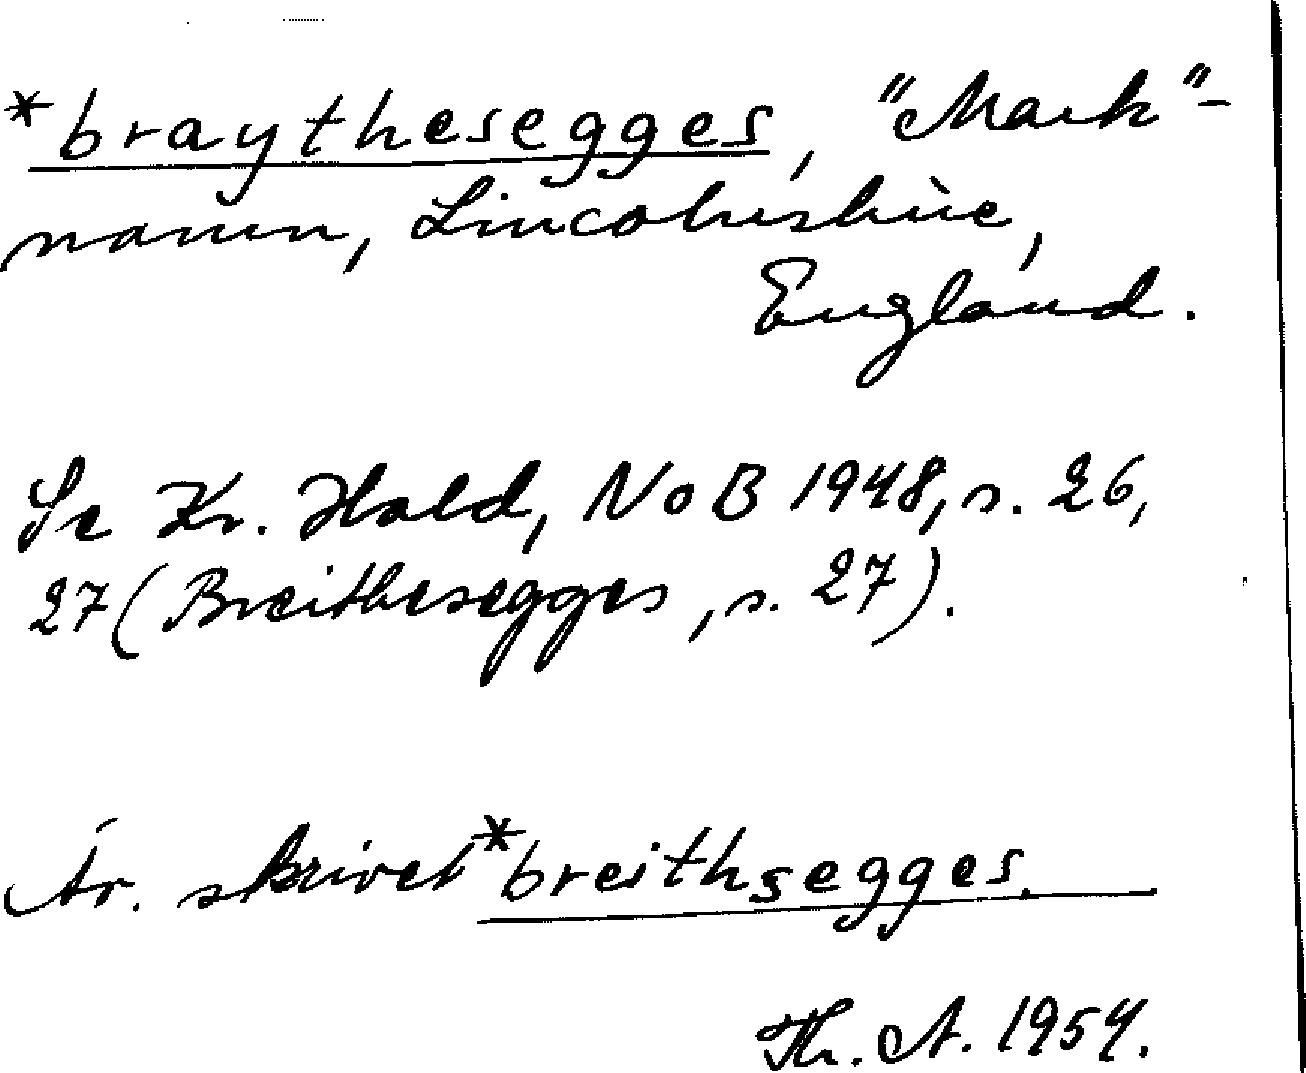 *braythesegges, "Mark"-
namn, Lincolnshire,
England.
Se Kr. Hald, NoB 1948, s. 26,
27 (Breithesegges, s. 27).
Är. skrivet *breithsegges.
Th. A. 1954.